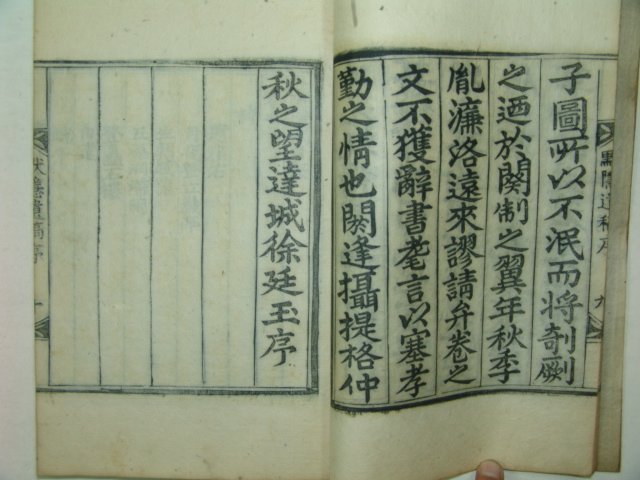 子圖所以不泯而將剞劂
之迺於関制之翼年秋季
胤濂洛遠來謬請弁卷之
文不獲辭書耄言以塞孝
勤之情也閼逢攝提格仲
秋之望達城徐廷玉序